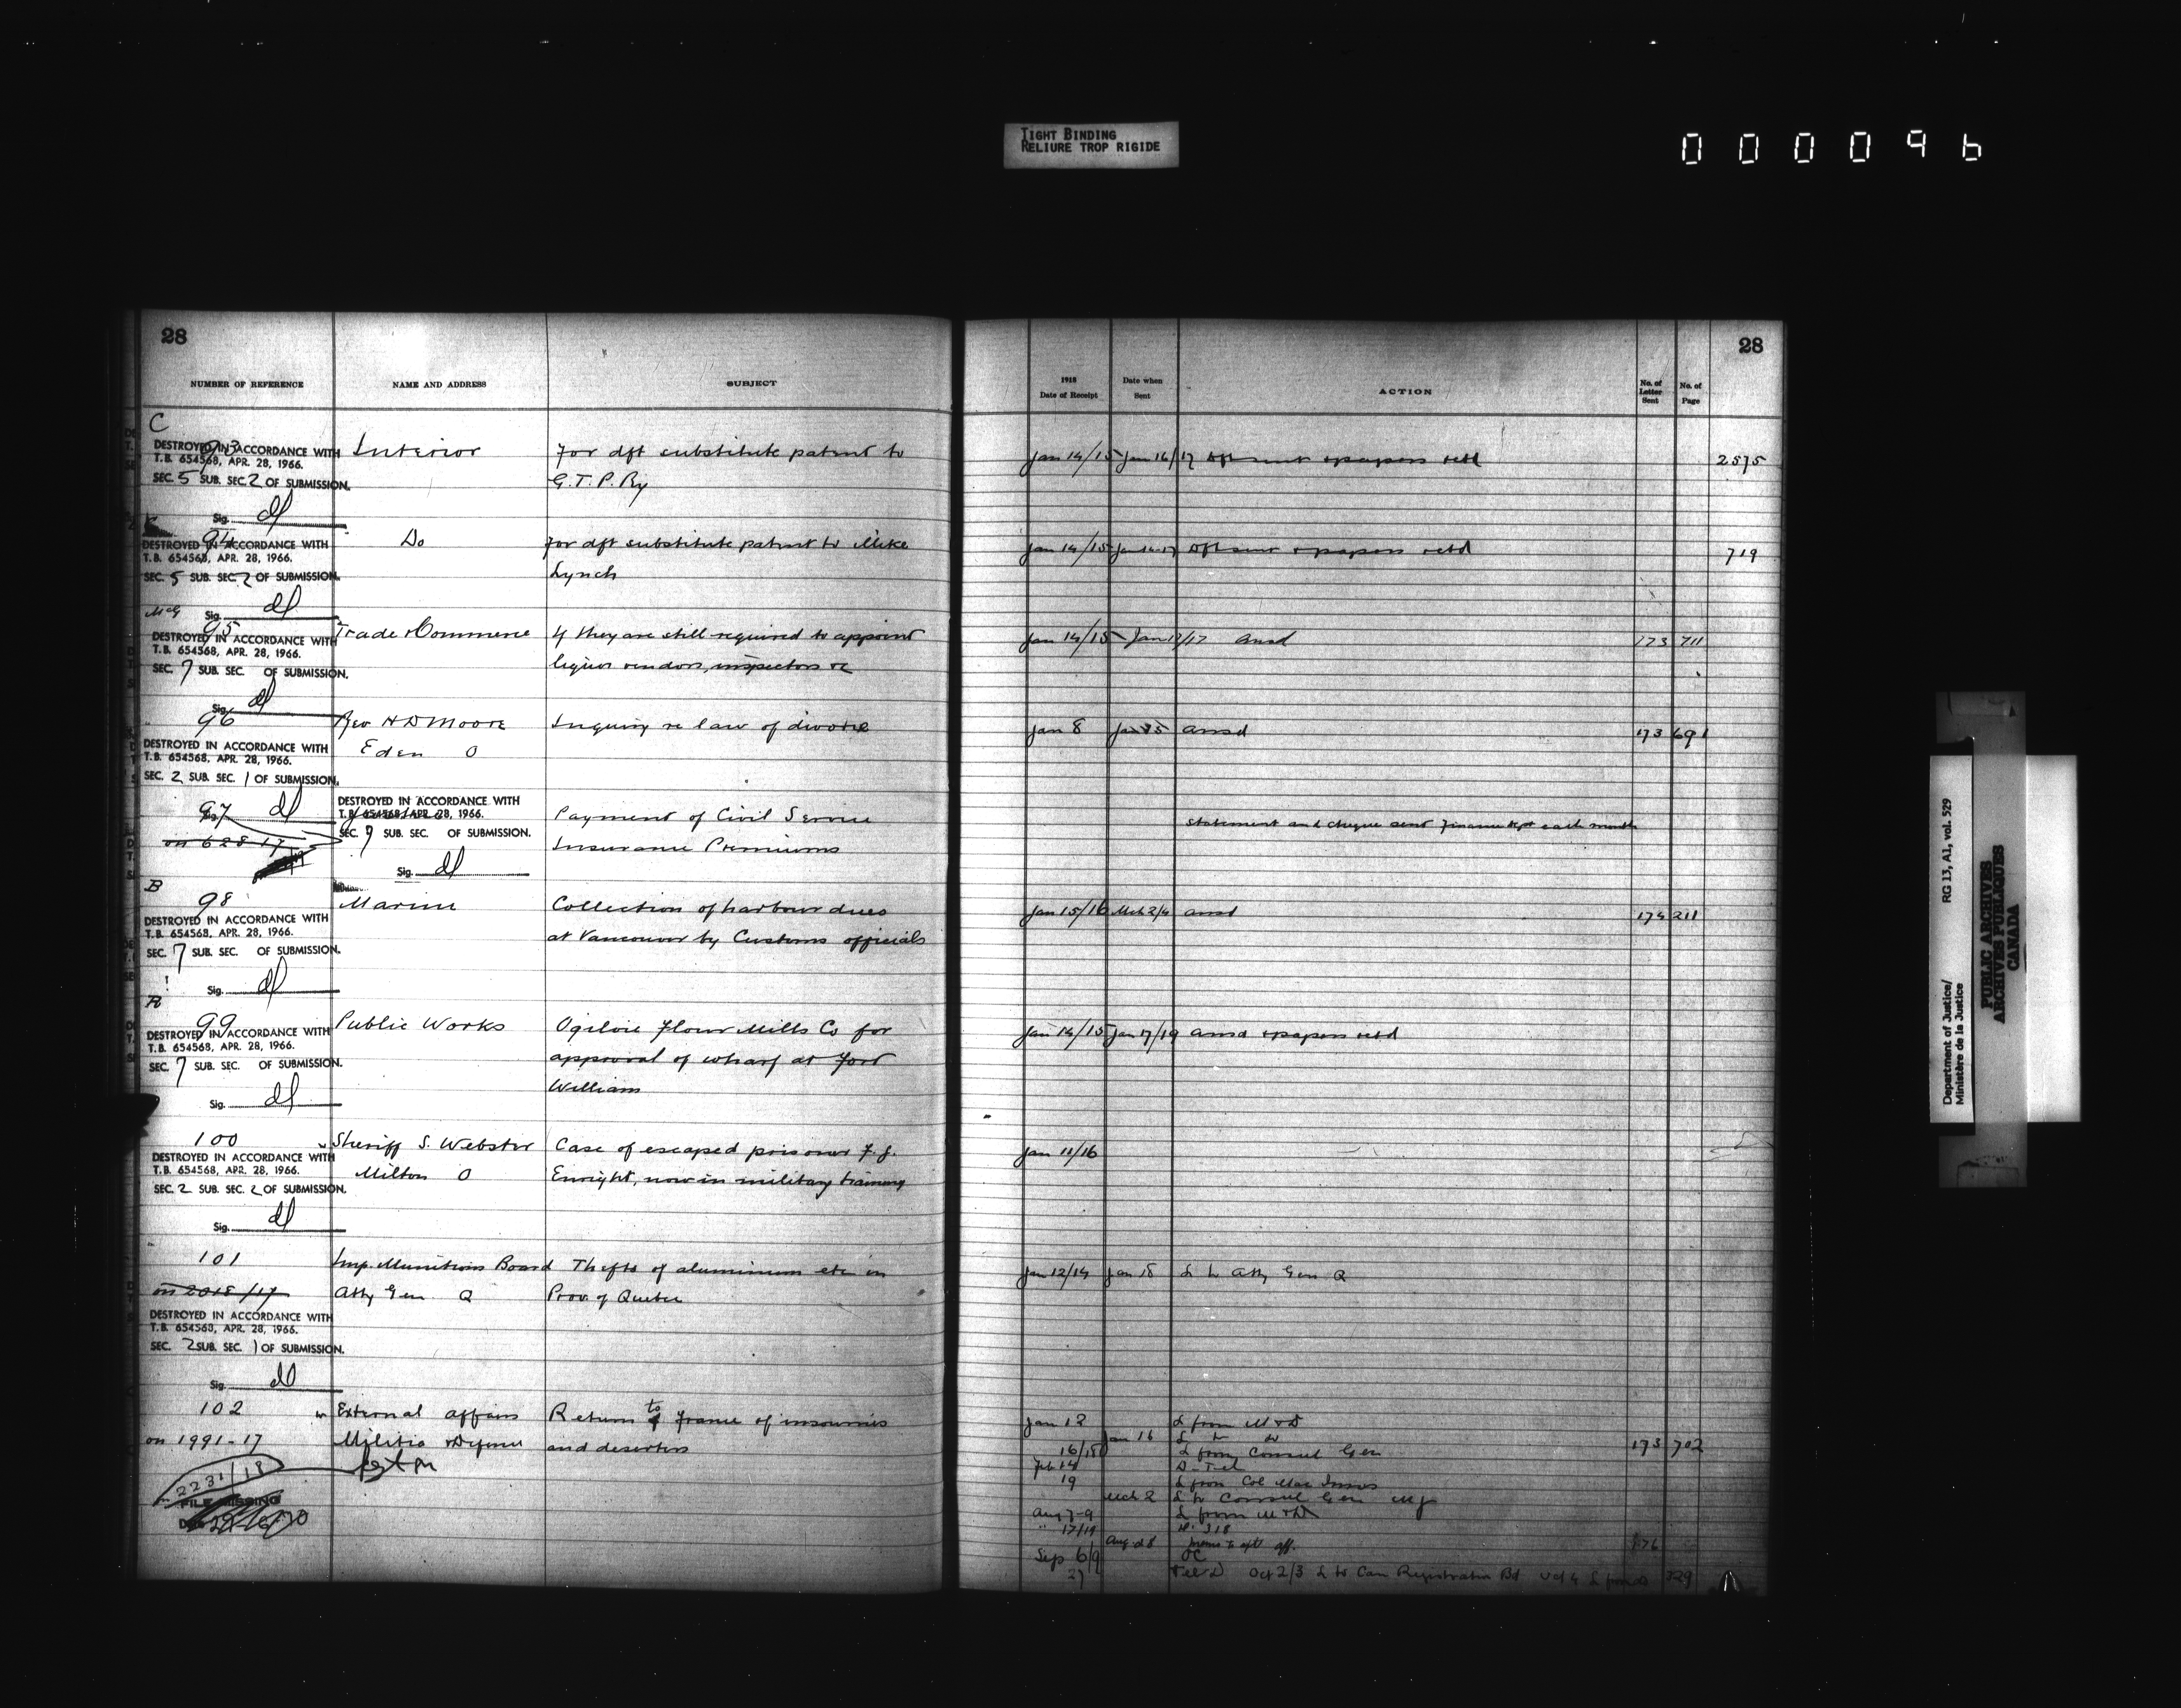 TIGHT BINDING
RELIURE TROP RIGIDE
000096
28
NUMBER OF REFERENCE NAME AND ADDRESS SUBJECT
C
93 Interior For dft substitute patent to
DESTROYED IN ACCORDANCE WITH
T.B. 654568, APR. 28, 1966.
SEC. 5 SUB. SEC. 2 OF SUBMISSION.
G.T.P. Ry
Sig. dl
94 Do For dft substitute patent to Mike
DESTROYED IN ACCORDANCE WITH
T.B. 654568, APR. 28, 1966.
SEC. 5 SUB. SEC. 2 OF SUBMISSION.
Lynch
Sig. dl
McG
95 Trade & Commerce If they are still required to appoint
DESTROYED IN ACCORDANCE WITH
T.B. 654568, APR. 28, 1966.
SEC. 7 SUB. SEC. OF SUBMISSION.
liquor vendors, inspectors &c
Sig. dl
96 Rev H D Moore Inquiry re law of divorce
Eden O
DESTROYED IN ACCORDANCE WITH
T.B. 654568, APR. 28, 1966.
SEC. 2 SUB. SEC. 1 OF SUBMISSION.
Sig. dl
97 Payment of Civil Service
DESTROYED IN ACCORDANCE WITH
T.B. 654568, APR. 28, 1966.
SEC. 7 SUB. SEC. OF SUBMISSION.
on 628-17 Insurance Premiums
Sig. dl
B
98 Marine Collection of harbour dues
DESTROYED IN ACCORDANCE WITH
T.B. 654568, APR. 28, 1966.
at Vancouver by Customs officials
SEC. 7 SUB. SEC. OF SUBMISSION.
Sig. dl
R
99 Public Works Ogilvie Flour Mills Co for
DESTROYED IN ACCORDANCE WITH
T.B. 654568, APR. 28, 1966.
approval of wharf at Fort
SEC. 7 SUB. SEC. OF SUBMISSION.
William
Sig. dl
100 Sheriff S. Webster Case of escaped prisoner F. J.
DESTROYED IN ACCORDANCE WITH
T.B. 654568, APR. 28, 1966.
Milton O Enright, now in military training
SEC. 2 SUB. SEC. 2 OF SUBMISSION.
Sig. dl
101 Imp. Munitions Board Thefts of aluminium etc in
on 2018/17 Atty Gen Q Prov. of Quebec
DESTROYED IN ACCORDANCE WITH
T.B. 654568, APR. 28, 1966.
SEC. 2 SUB. SEC. 1 OF SUBMISSION.
Sig. dl
102 External Affairs Return to France of insoumis
on 1991-17 Militia & Defence and deserters
2231/18
FILE MISSING
28
1918
Date of Receipt Date when Sent ACTION No. of Letter Sent No. of Page
Jan 14/15 Jan 16/17 dft sent & papers retd 2575
Jan 14/15 Jan 16-17 dft sent & papers retd 719
Jan 14/15 Jan 17/17 ansd 173 711
Jan 8 Jan 15 ansd 173 691
Statement and cheque sent Finance Dept each month
Jan 15/16 Mch 2/4 ansd 174 211
Jan 14/15 Jan 17/19 ansd & papers retd
Jan 11/16
Jan 12/14 Jan 18 L to Atty Gen Q
Jan 12 L from M & D
Jan 16 L to Do 173 702
16/18 L from Consul Gen
Feb 14
19 L from Col Mac Innes
Mch 2 L to Consul Gen
Aug 7-9 L from M & D
" 17/19
Aug 28 memo to
Sep 6/9 OC
27 Oct 2/3 L to Can Registration Bd Oct 4 729
Department of Justice/
Ministère de la Justice
RG 13, A1, vol. 529
PUBLIC ARCHIVES
ARCHIVES PUBLIQUES
CANADA